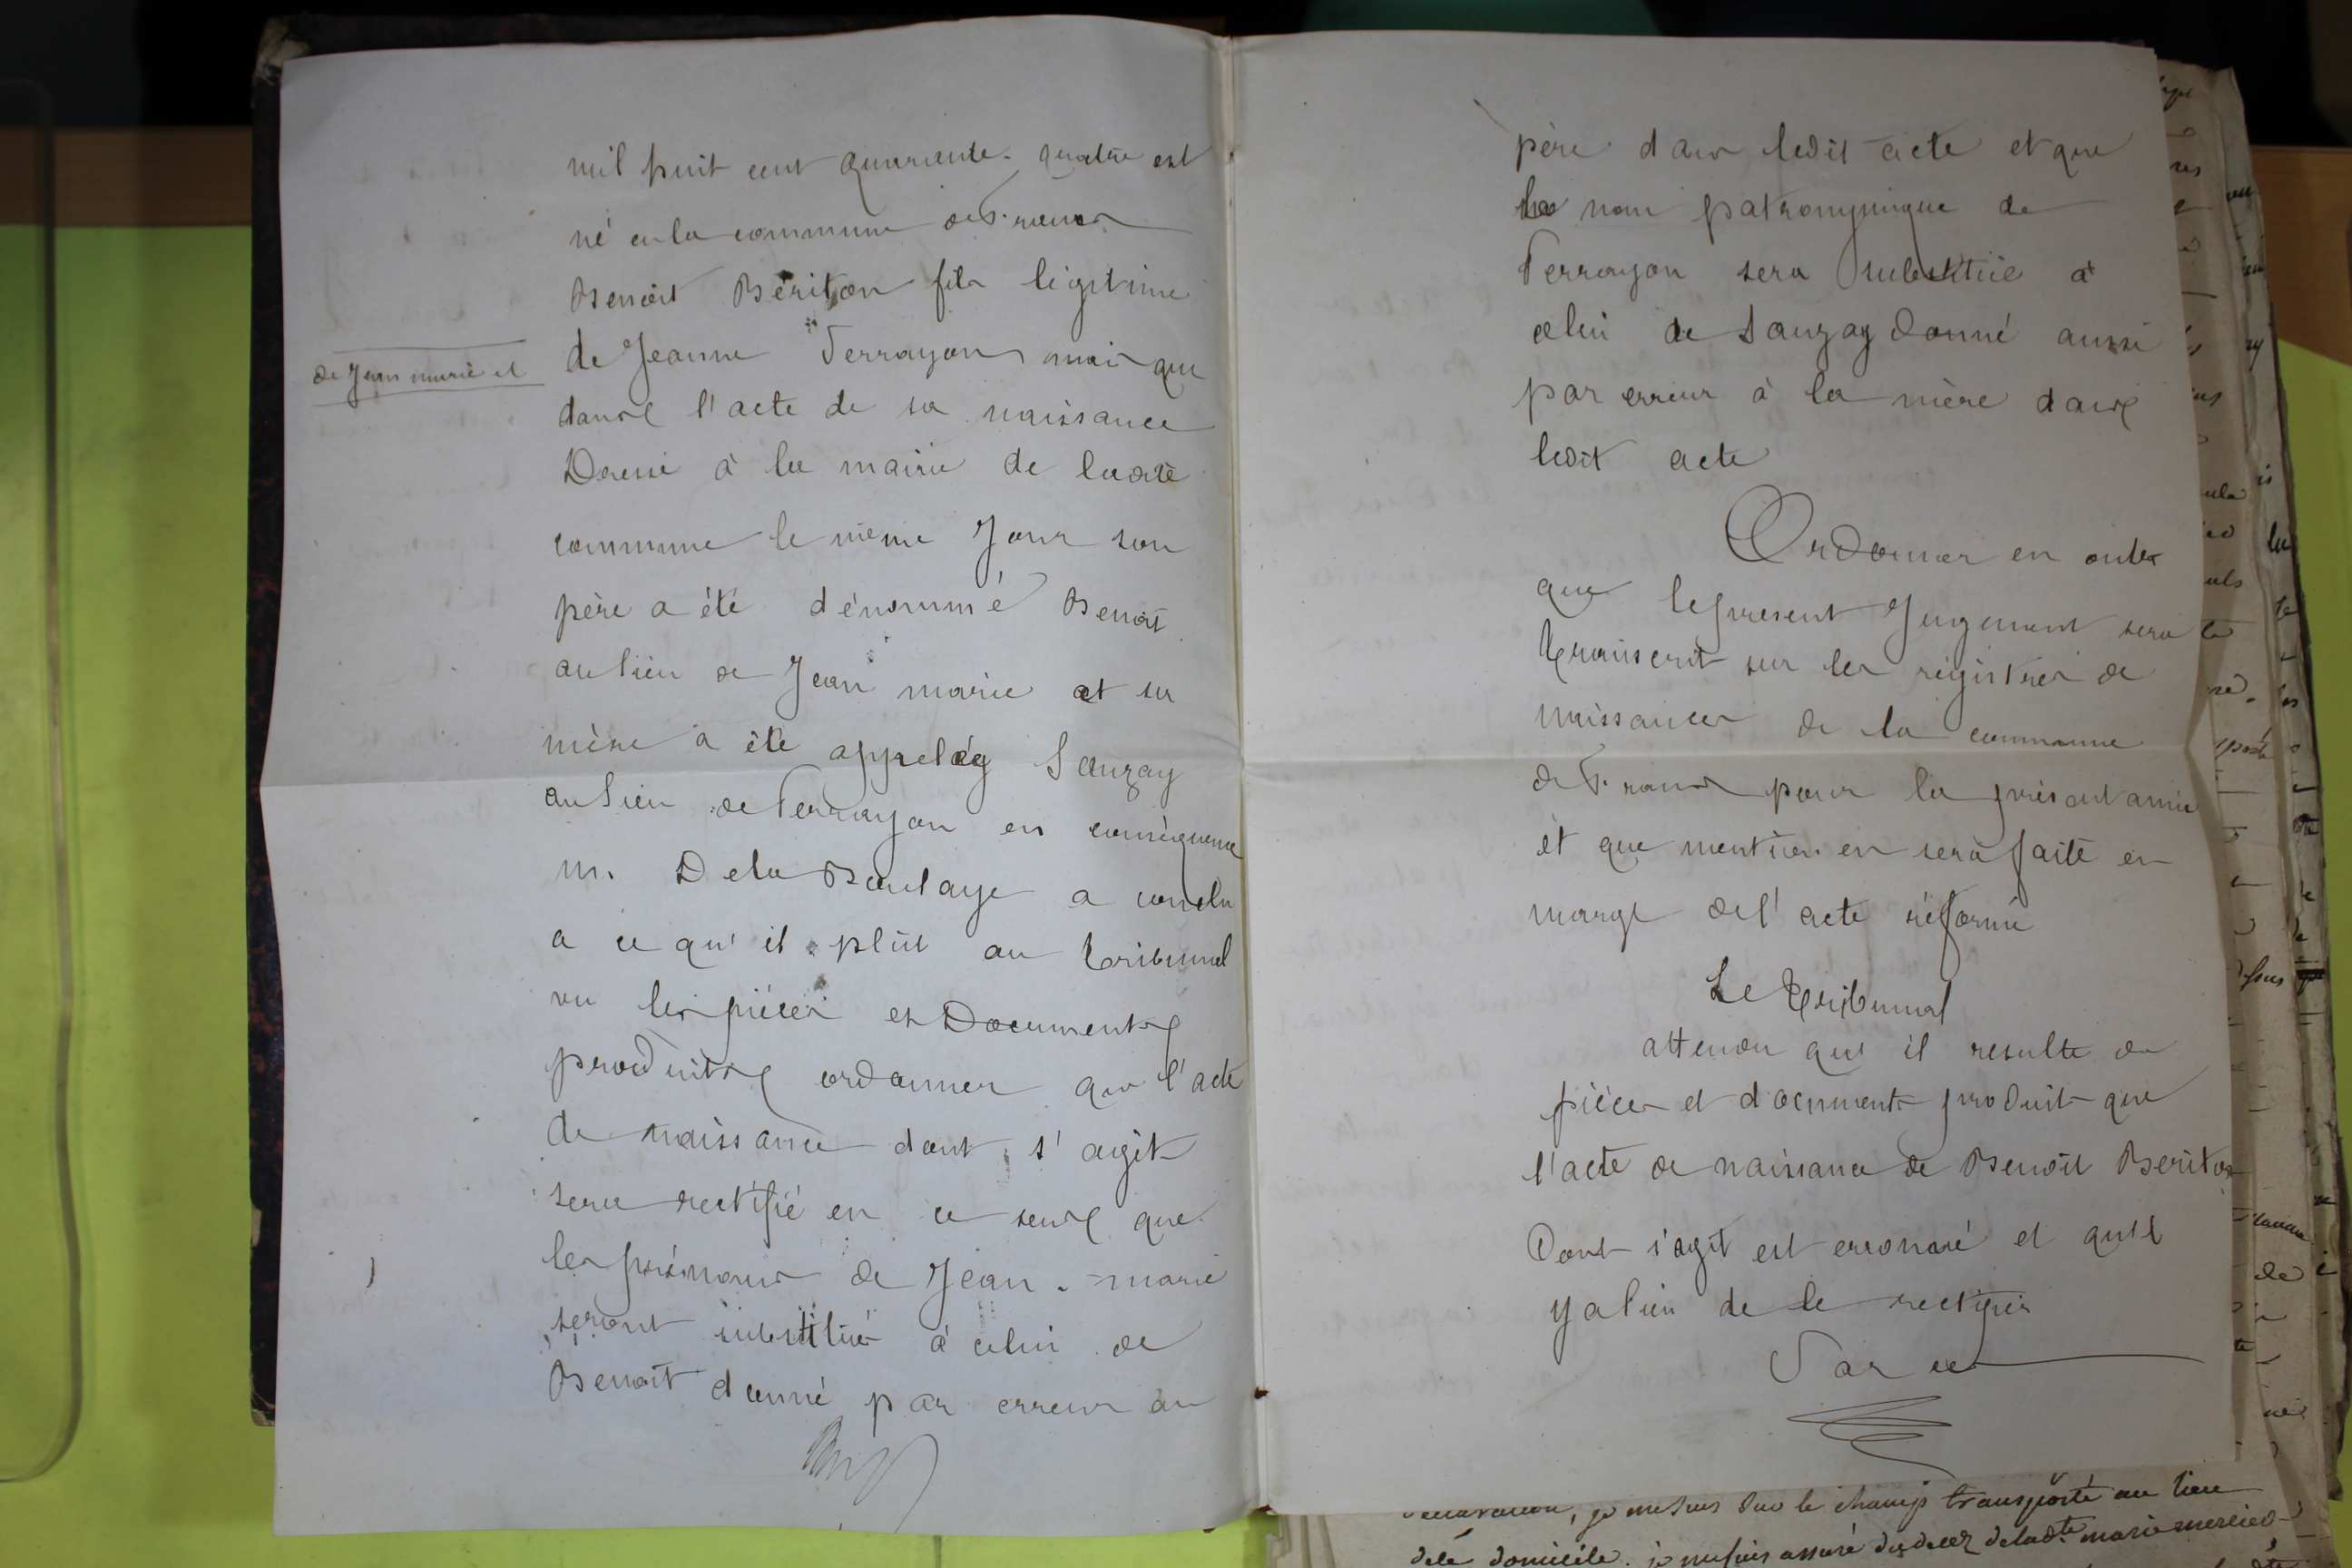 mil huit cent quarante-quatre est
né en la commune de St. romain
Benoit Bériton fils légitime
de Jean marie et
de Jeanne Terrayon mais que
dans l'acte de sa naissance
Dressé à la mairie de ladite
commune le même Jour son
père a été dénommé Benoit
au lieu de Jean marie et sa
mère a été appelée Sauzay
au lieu de Terrayon en conséquence
m. Dela Boulaye a conclu
a ce qu'il plût au tribunal
vu les pièces et Documents
produits ordonner que l'acte
de naissance dont s'agit
sera rectifié en ce sens que
les prénoms de Jean-marie
seront substitués à celui de
Benoit donné par erreur au
père dans ledit acte et que
le nom patronymique de
Terrayon sera substitué à
celui de Sauzay donné aussi
par erreur à la mère dans
ledit acte
Ordonner en outre
que le present Jugement sera
transcrit sur les régistres de
naissances de la commune
de St. romain pour la présent année
et que mention en sera faite en
marge de l'acte réformé
Le tribunal
attendu qu'il resulte des
pièces et documents produits que
l'acte de naissance de Benoît Beriton
Dont s'agit est erronné et qu'il
y a lieu de le rectifier
Par ces
je me suis sur le champ transporté au lieu
dele domicile. je me suis assuré du décez deladte. marie mercier